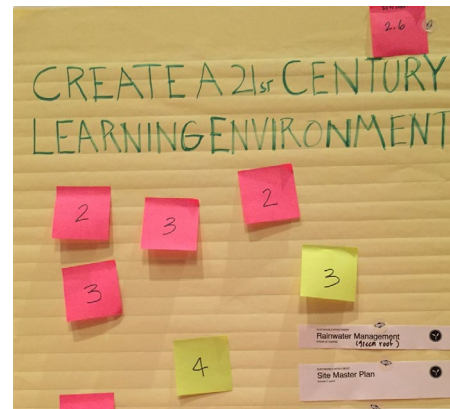 2.6
CREATE A 21st CENTURY
LEARNING ENVIRONMENT
2
3
2
3
3
Rainwater Management
(Green roof)
4
Site Master Plan